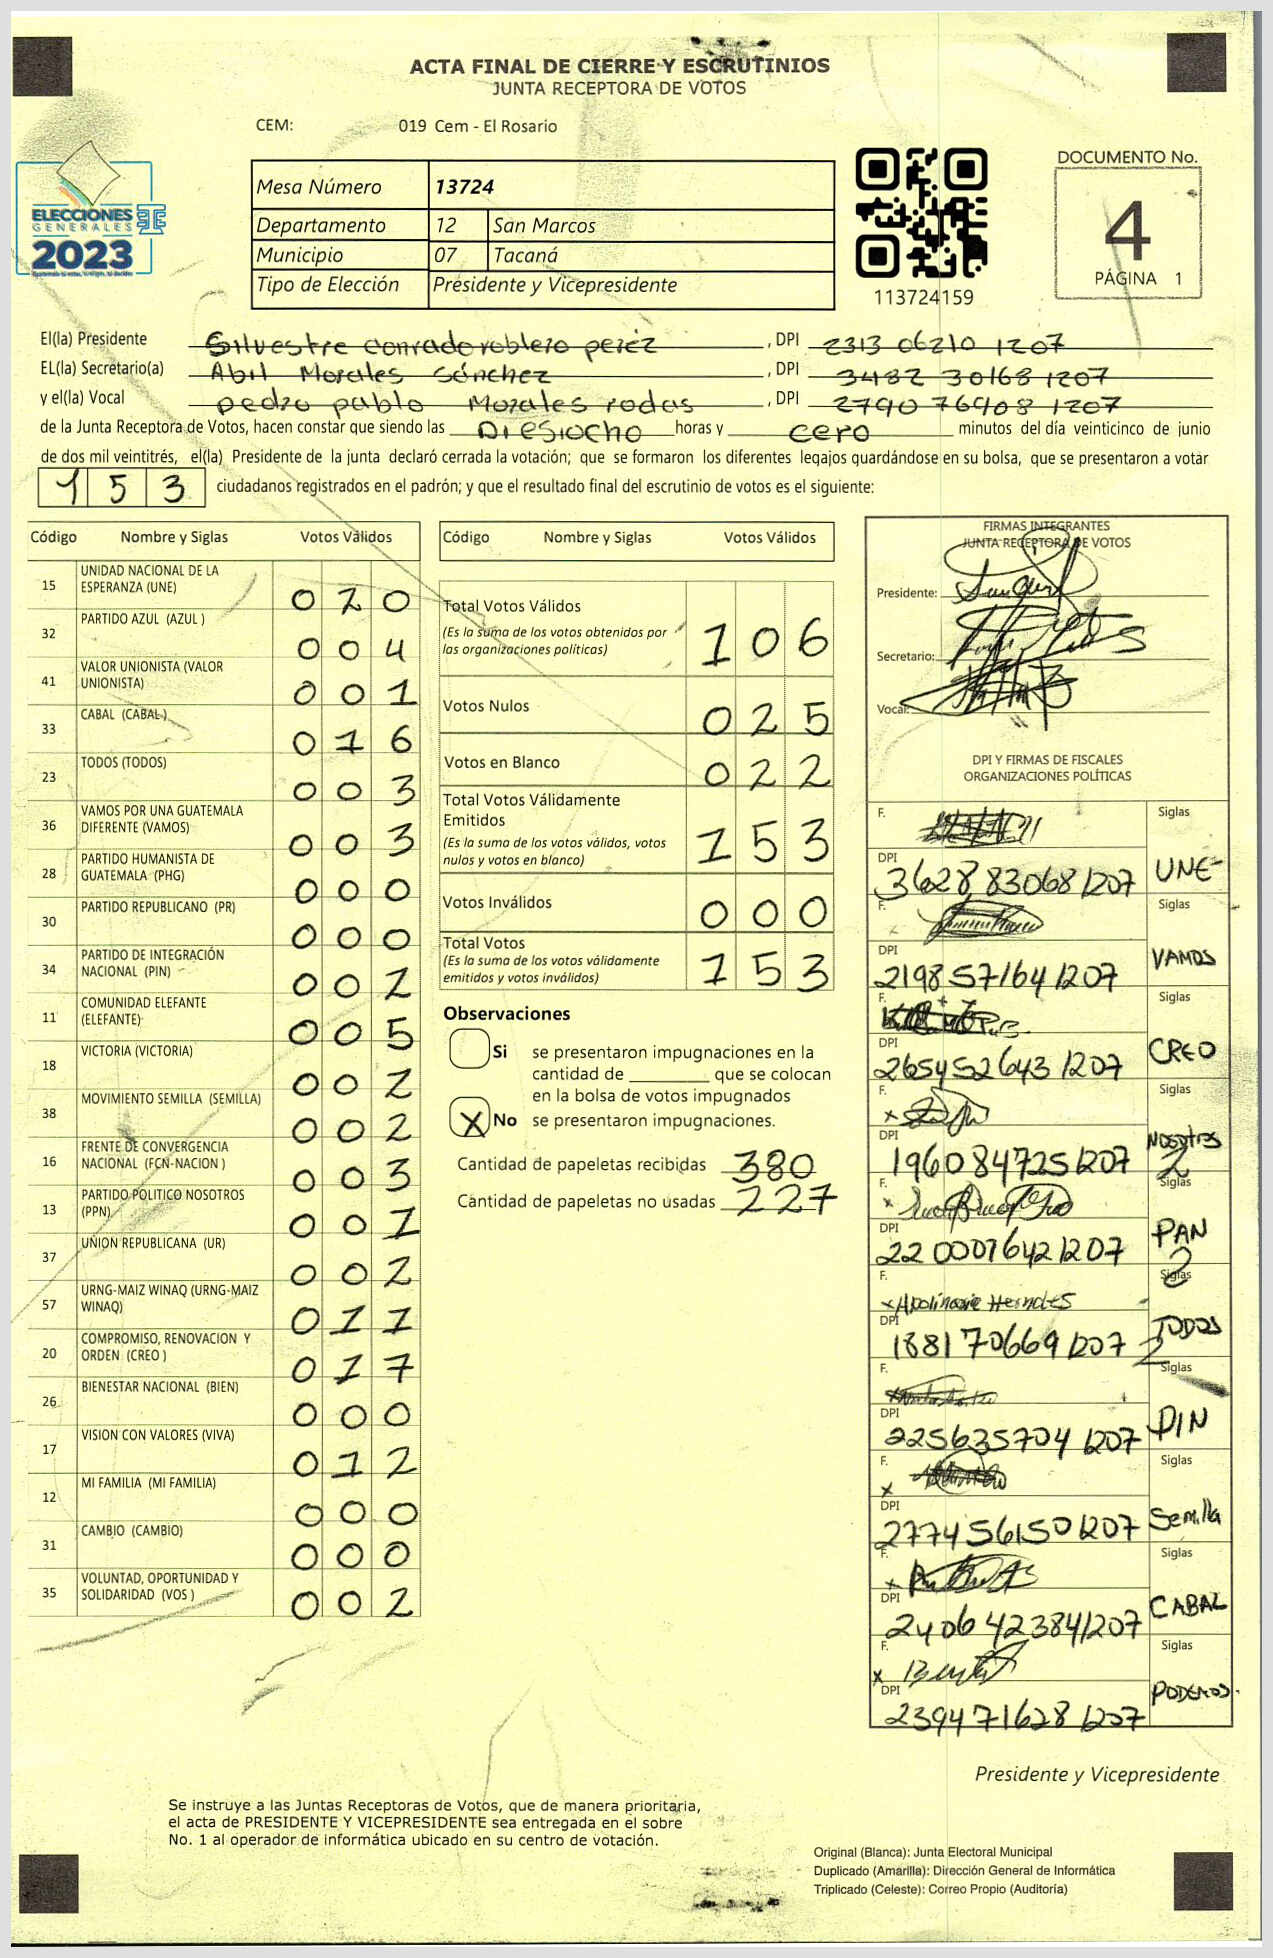 ACTA FINAL DE CIERRE Y ESCRUTINIOS
JUNTA RECEPTORA DE VOTOS
CEM: 019 Cem - El Rosario
ELECCIONES
GENERALES
2023
Mesa Número 13724
Departamento 12 San Marcos
Municipio 07 Tacaná
Tipo de Elección Présidente y Vicepresidente
113724159
DOCUMENTO No.
4
PÁGINA 1
El(la) Presidente Silvestre conrado roblero peréz , DPI 2313 06210 1207
EL(la) Secretario(a) Abil Morales Sánchez , DPI 3482 30168 1207
y el(la) Vocal pedro pablo Morales rodas , DPI 2790 76908 1207
de la Junta Receptora de Votos, hacen constar que siendo las Diesiocho horas y cero minutos del día veinticinco de junio
de dos mil veintitrés, el(la) Presidente de la junta declaró cerrada la votación; que se formaron los diferentes legajos guardándose en su bolsa, que se presentaron a votar
153 ciudadanos registrados en el padrón; y que el resultado final del escrutinio de votos es el siguiente:
Código Nombre y Siglas Votos Válidos
15 UNIDAD NACIONAL DE LA
ESPERANZA (UNE) 020
32 PARTIDO AZUL (AZUL ) 004
41 VALOR UNIONISTA (VALOR
UNIONISTA) 001
33 CABAL (CABAL ) 016
23 TODOS (TODOS) 003
36 VAMOS POR UNA GUATEMALA
DIFERENTE (VAMOS) 003
28 PARTIDO HUMANISTA DE
GUATEMALA (PHG) 000
30 PARTIDO REPUBLICANO (PR) 000
34 PARTIDO DE INTEGRACIÓN
NACIONAL (PIN) 002
11 COMUNIDAD ELEFANTE
(ELEFANTE) 005
18 VICTORIA (VICTORIA) 002
38 MOVIMIENTO SEMILLA (SEMILLA) 002
16 FRENTE DE CONVERGENCIA
NACIONAL (FCN-NACION ) 003
13 PARTIDO POLITICO NOSOTROS
(PPN) 001
37 UNION REPUBLICANA (UR) 002
57 URNG-MAIZ WINAQ (URNG-MAIZ
WINAQ) 011
20 COMPROMISO, RENOVACION Y
ORDEN (CREO ) 017
26 BIENESTAR NACIONAL (BIEN) 000
17 VISION CON VALORES (VIVA) 012
12 MI FAMILIA (MI FAMILIA) 000
31 CAMBIO (CAMBIO) 000
35 VOLUNTAD, OPORTUNIDAD Y
SOLIDARIDAD (VOS ) 002
Código Nombre y Siglas Votos Válidos
Total Votos Válidos 106
(Es la suma de los votos obtenidos por
las organizaciones políticas)
Votos Nulos 025
Votos en Blanco 022
Total Votos Válidamente
Emitidos 153
(Es la suma de los votos válidos, votos
nulos y votos en blanco)
Votos Inválidos 000
Total Votos 153
(Es la suma de los votos válidamente
emitidos y votos inválidos)
Observaciones
Si se presentaron impugnaciones en la
cantidad de ________ que se colocan
en la bolsa de votos impugnados
X No se presentaron impugnaciones.
Cantidad de papeletas recibidas 380
Cantidad de papeletas no usadas 227
FIRMAS INTEGRANTES
JUNTA RECEPTORA DE VOTOS
Presidente:
Secretario:
Vocal:
DPI Y FIRMAS DE FISCALES
ORGANIZACIONES POLÍTICAS
F. Siglas
DPI 3628 83068 1207 UNE
F. Siglas
DPI 2198 57164 1207 VAMOS
F. Siglas
DPI 2654 52643 1207 CREO
F. Siglas
DPI 1960 84725 1207 NOSOTRES
F. Siglas
DPI 22 00076421207 PAN
F. Siglas
DPI 1881 70669 1207 TODOS
F. Siglas
DPI 225635704 1207 PIN
F. Siglas
DPI 2774 56150 1207 Semilla
F. Siglas
DPI 2406 42384 1207 CABAL
F. Siglas
DPI 2394 71628 1207 PODEMOS.
Presidente y Vicepresidente
Se instruye a las Juntas Receptoras de Votos, que de manera prioritaria,
el acta de PRESIDENTE Y VICEPRESIDENTE sea entregada en el sobre
No. 1 al operador de informática ubicado en su centro de votación.
Original (Blanca): Junta Electoral Municipal
Duplicado (Amarilla): Dirección General de Informática
Triplicado (Celeste): Correo Propio (Auditoría)